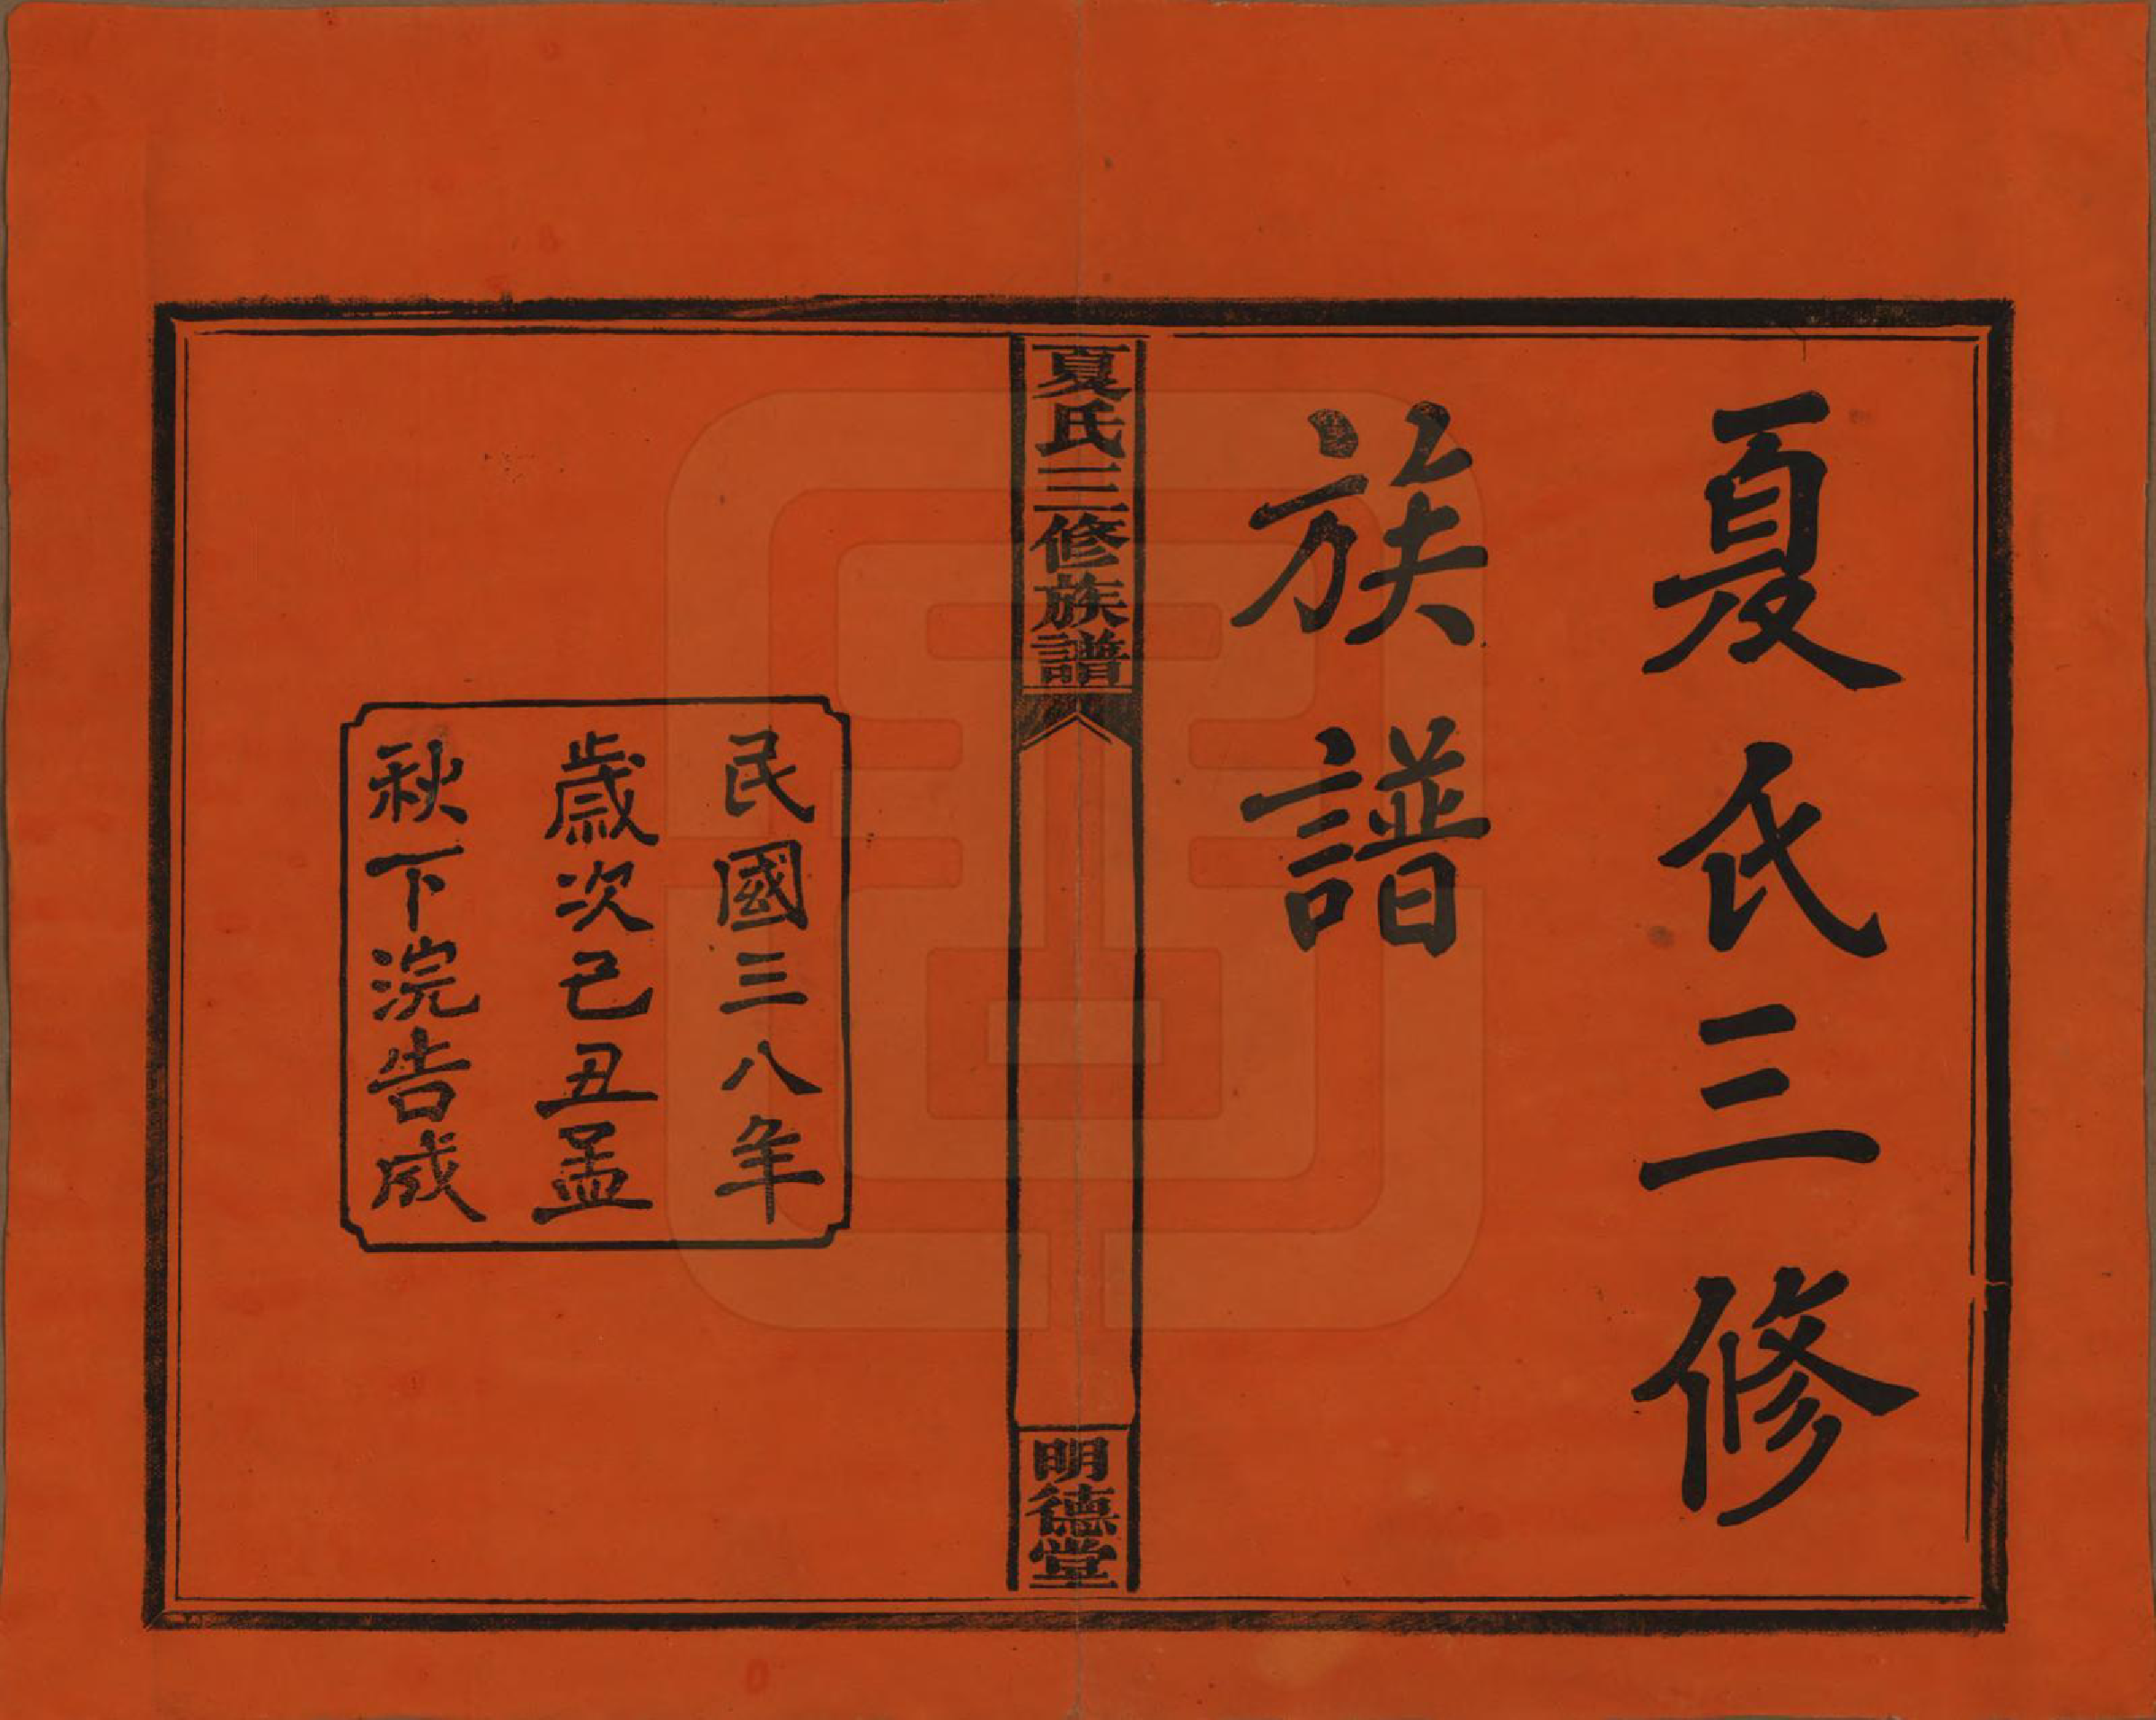 夏氏三修
族譜
夏氏三修族譜
明德堂
民國三八年
歲次己丑孟
秋下浣告成